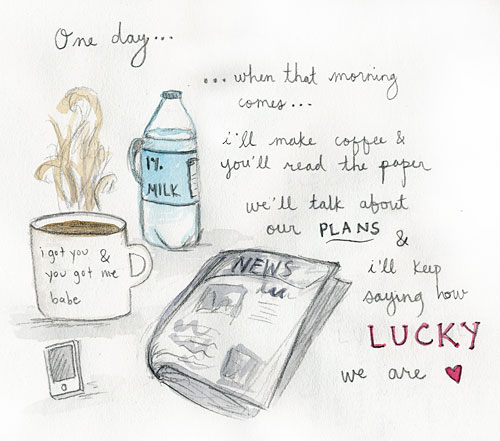 One day...
...when that morning
comes...
i'll make coffee &
you'll read the paper
we'll talk about
our PLANS
&
i'll keep
saying how
LUCKY
we are
1%
MILK
i got you &
you got me
babe
NEWS